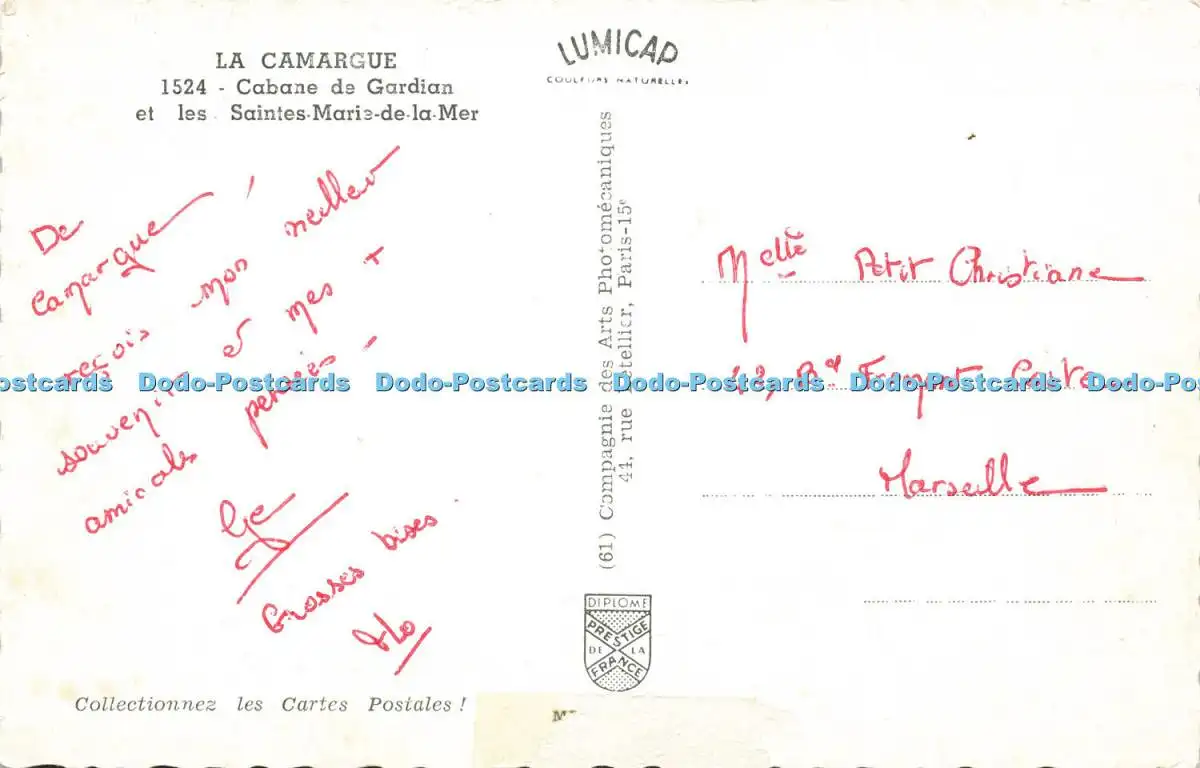 LA CAMARGUE
1524 - Cabane de Gardian
et les Saintes-Marie-de-la-Mer
LUMICAP
COULEURS NATURELLES
De
Camargue !
reçois mon meilleur
souvenir et mes +
amicales pensées -
Ge
Grosses bises
Flo
Collectionnez les Cartes Postales !
(61) Compagnie des Arts Photomécaniques
44, rue Letellier, Paris-15e
DIPLOME
PRESTIGE
DE LA
FRANCE
Melle Petit Christiane
Marseille
Dodo-Postcards Dodo-Postcards Dodo-Postcards Dodo-Postcards Dodo-Postcards